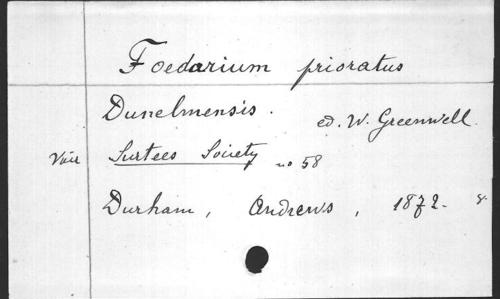 Foedarium prioratus
Dunelmensis.
ed. W. Greenwell.
Voir Surtees Society no 58
Durham, Andrews, 1872. 8.